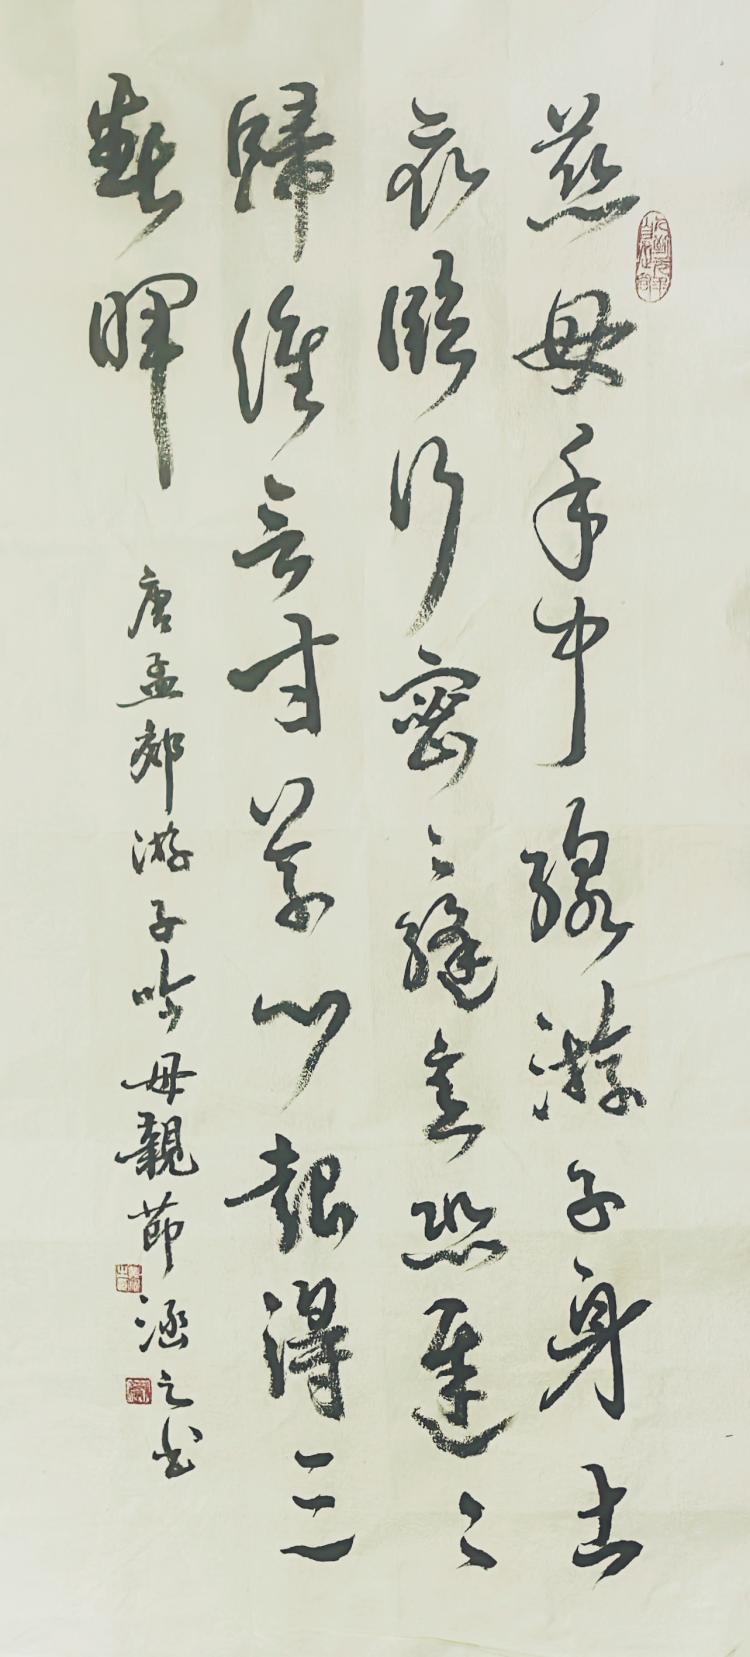 慈母手中線游子身上
衣臨行密〻縫意恐遲〻
歸誰言寸草心報得三
春暉
唐孟郊游子吟母親節涵之書